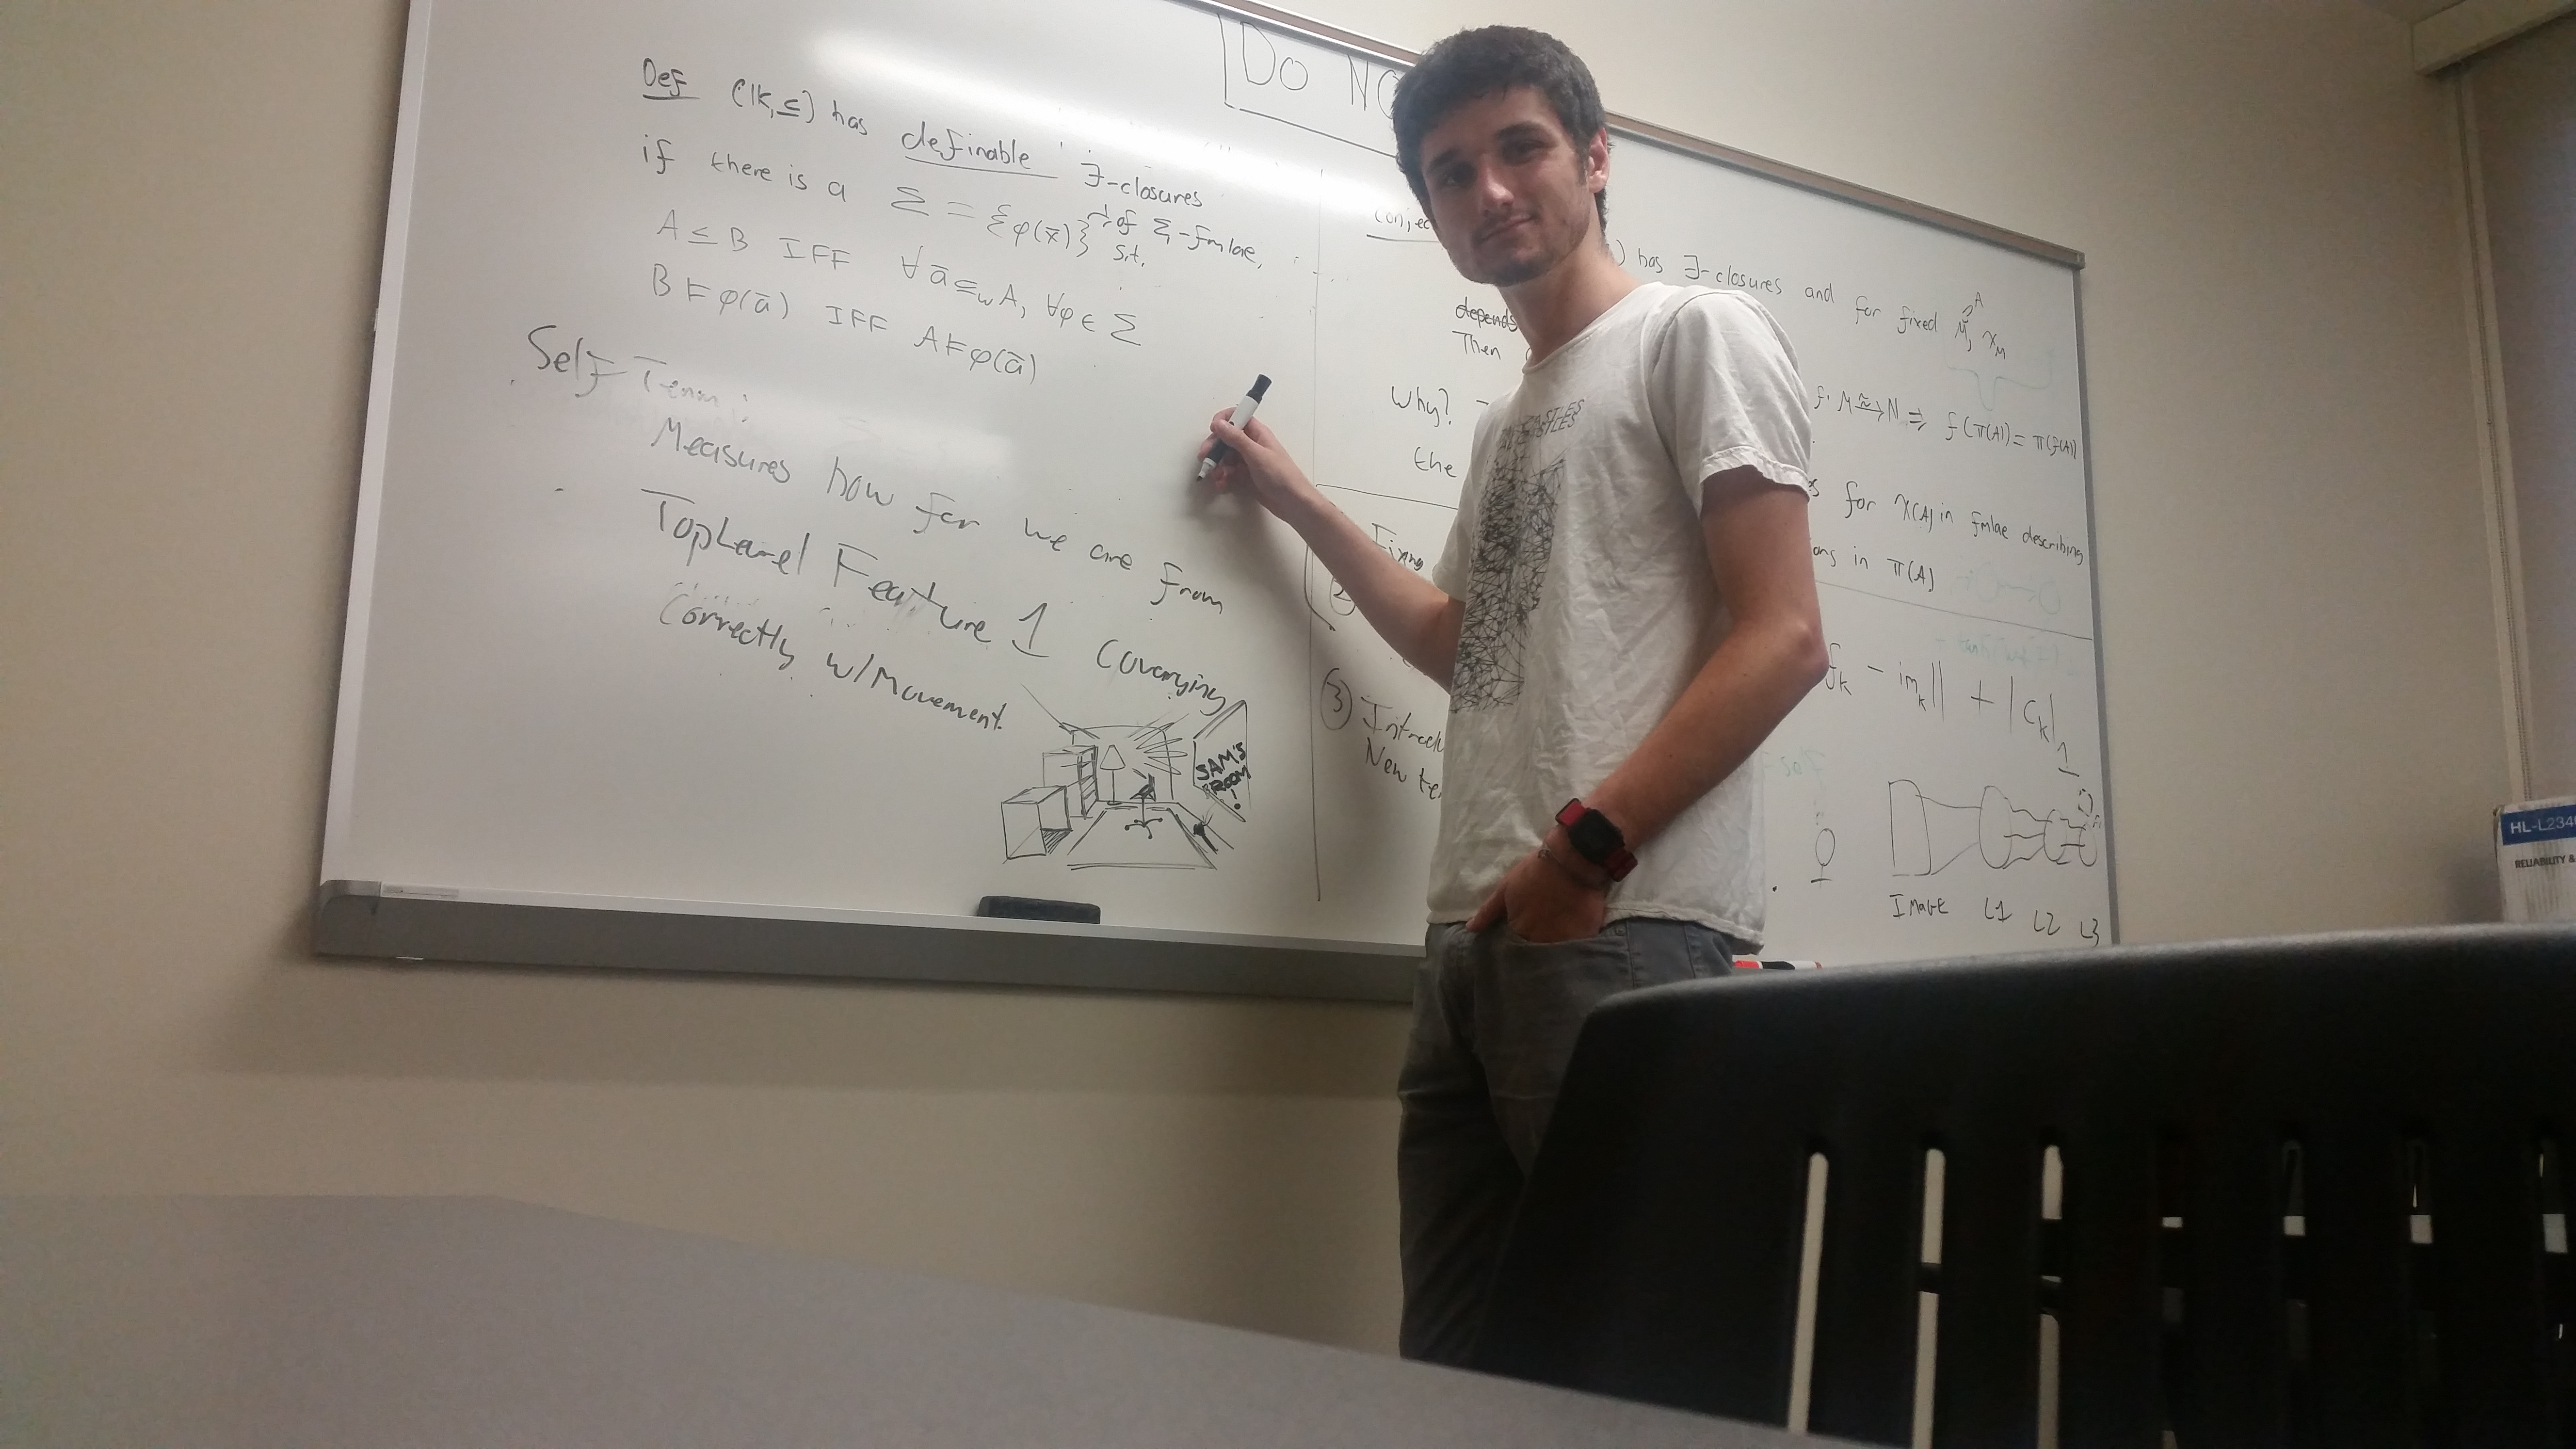 Do NO
Def (𝕂, ≤) has definable ∃-closures
if there is a Σ = {φ(x̄)} of Σ₁-fmlae, s.t.
A ≤ B IFF ∀ ā ⊆ω A, ∀φ ∈ Σ
B ⊨ φ(ā) IFF A ⊨ φ(ā)
Self Term:
Measures how far we are from
TopLevel Feature 1 Covarying
Correctly w/Movement.
SAM'S
ROOM
!
Conjec
) has ∃-closures and for fixed
depends
Then
Why?
f: M ≅→ N ⇒ f(π(A)) = π(f(A))
the
for χ(A) in fmlae describing
ons in π(A)
Fixing
2
fk - imk|| + |Ck|1
3 Introdu
New te
IMAGE L1 L2 L3
CASTLES
HL-L234
RELIABILITY &